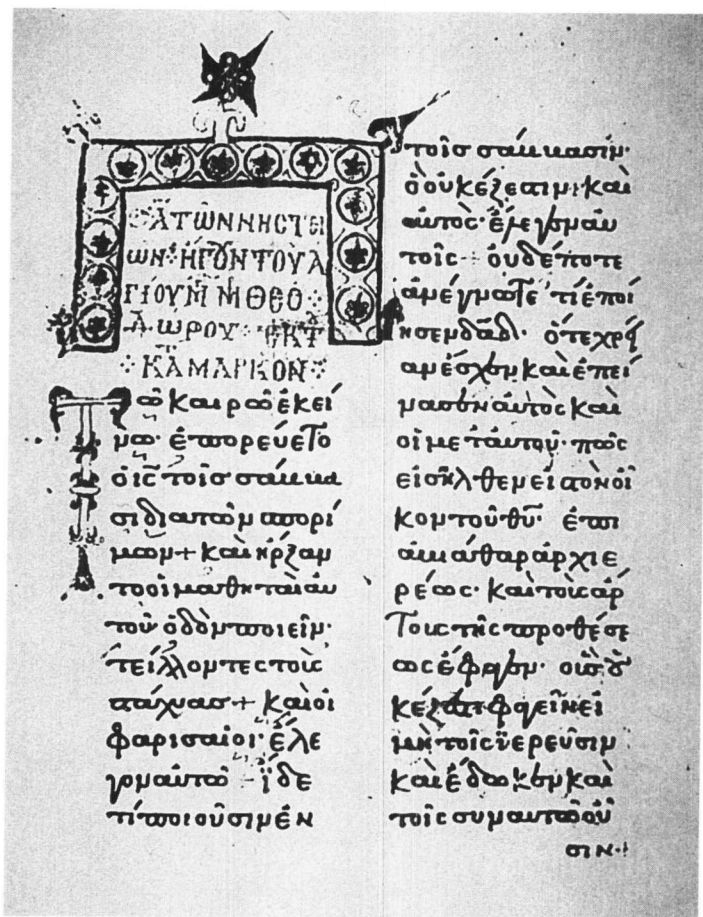 ΣΑ ΤΩΝ ΝΗΣΤΕΙ
ΩΝ· ΗΓΟΥΝ ΤΟΥ Α
ΓΙΟΥ Μ Μ ΘΕΟ
ΔΩΡΟΥ· ΕΚ Τ
ΚΑ ΜΑΡΚΟΝ
Τῶ καιρῶ ἐκεί
νω· ἐπορεύετο
ὁ ις̄ τοῖσ σάββα
σι διὰ τῶν σπορί
μων + καὶ ἤρξαν
το οἱ μαθηταὶ αὐ
τοῦ ὁδὸν ποιεῖν·
τείλλοντες τοὺς
στάχυας + καὶ οἱ
φαρισαῖοι· ἔλε
γον αὐτῶ - ἴδε
τί ποιοῦσιν ἐν
τοῖσ σάββασιν·
ὃ οὐκ ἔξεστιν· καὶ
αὐτὸς· ἔλεγεν αὐ
τοῖς - οὐδέποτε
ἀνέγνωτε τί ἐποί
ησεν δαδ· ὅτε χρεί
αν ἔσχεν καὶ ἐπεί
νασεν αὐτὸς καὶ
οἱ μετ αὐτοῦ· πῶς
εἰσῆλθεν εἰς τὸν οἶ
κον τοῦ θῡ· ἐπὶ
ἀβιάθαρ ἀρχιε
ρέως· καὶ τοὺς ἄρ
τους τῆς προθέσε
ως ἔφαγεν· οὓσ οὐ
κ ἔξεστι φαγεῖν εἰ
μὴ τοῖς ἱερεῦσιν
καὶ ἔδωκεν καὶ
τοῖς συν αὐτῶ οὖ
σιν·